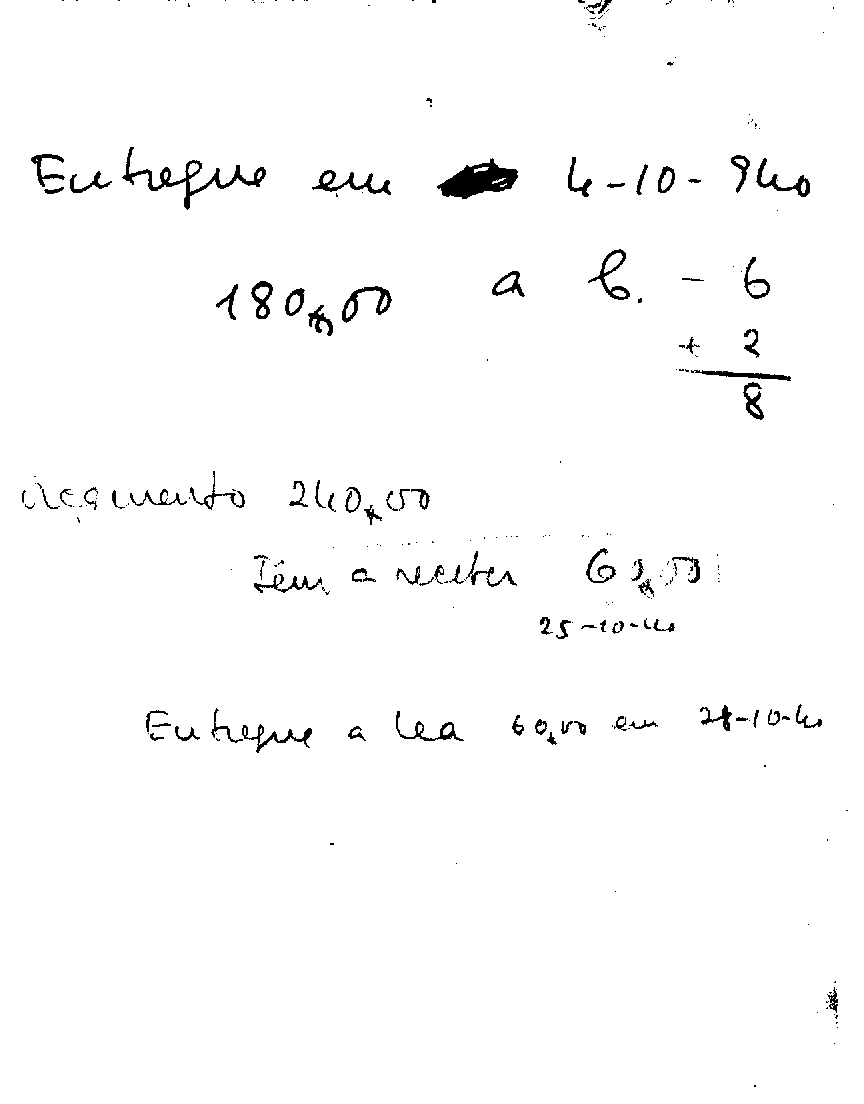 Entregue em 4-10-940
180$00 a C. - 6
+ 2
8
orçamento 240$00
Têm a receber 60$00
25-10-40
Entregue a Lea 60$00 em 28-10-40